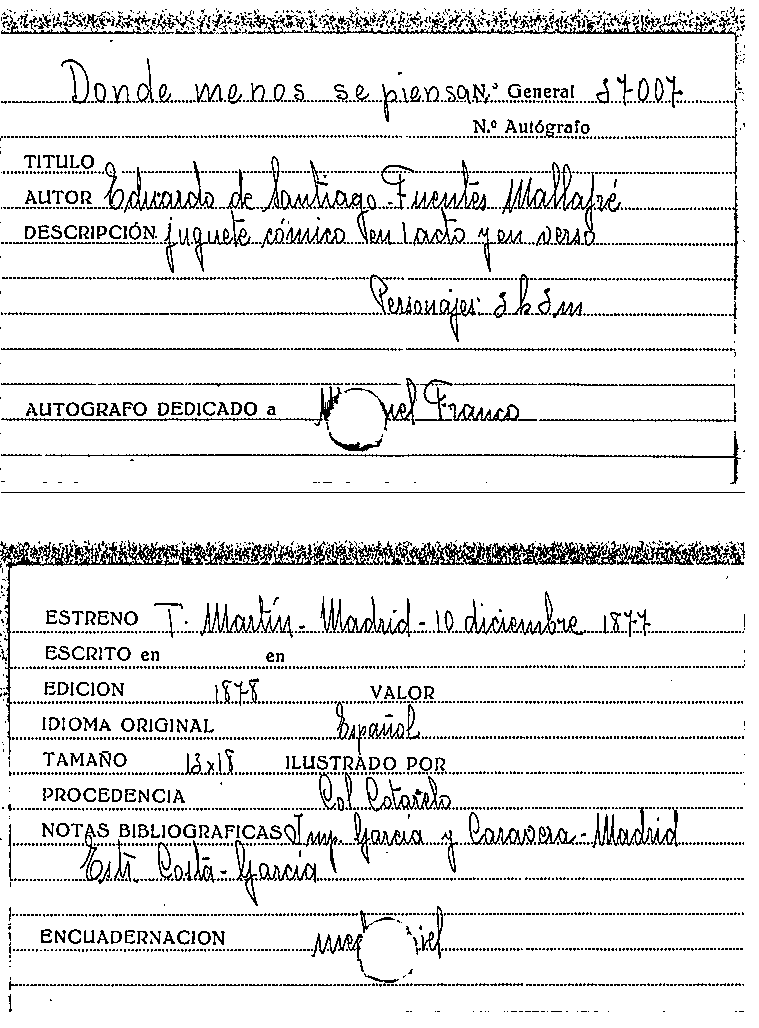 Donde menos se piensa N.º General 37007
N.º Autógrafo
TITULO
AUTOR Eduardo de Santiago-Fuentes Mallafré
DESCRIPCIÓN juguete cómico en 1 acto y en verso
Personajes: 3 h 3 m
AUTOGRAFO DEDICADO a Franco
ESTRENO T. Martín - Madrid - 10 diciembre 1877
ESCRITO en en
EDICION 1878 VALOR
IDIOMA ORIGINAL Español
TAMAÑO 13x18 ILUSTRADO POR
PROCEDENCIA Col. Cotarelo
NOTAS BIBLIOGRAFICAS Imp. García y Caravera - Madrid
Estr. Costa - García
ENCUADERNACION